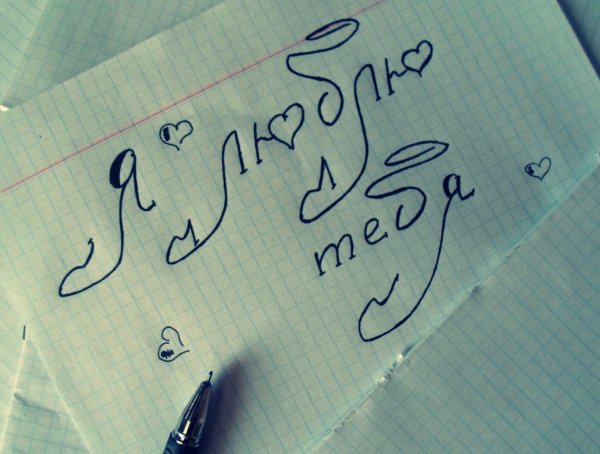 Я люблю
тебя